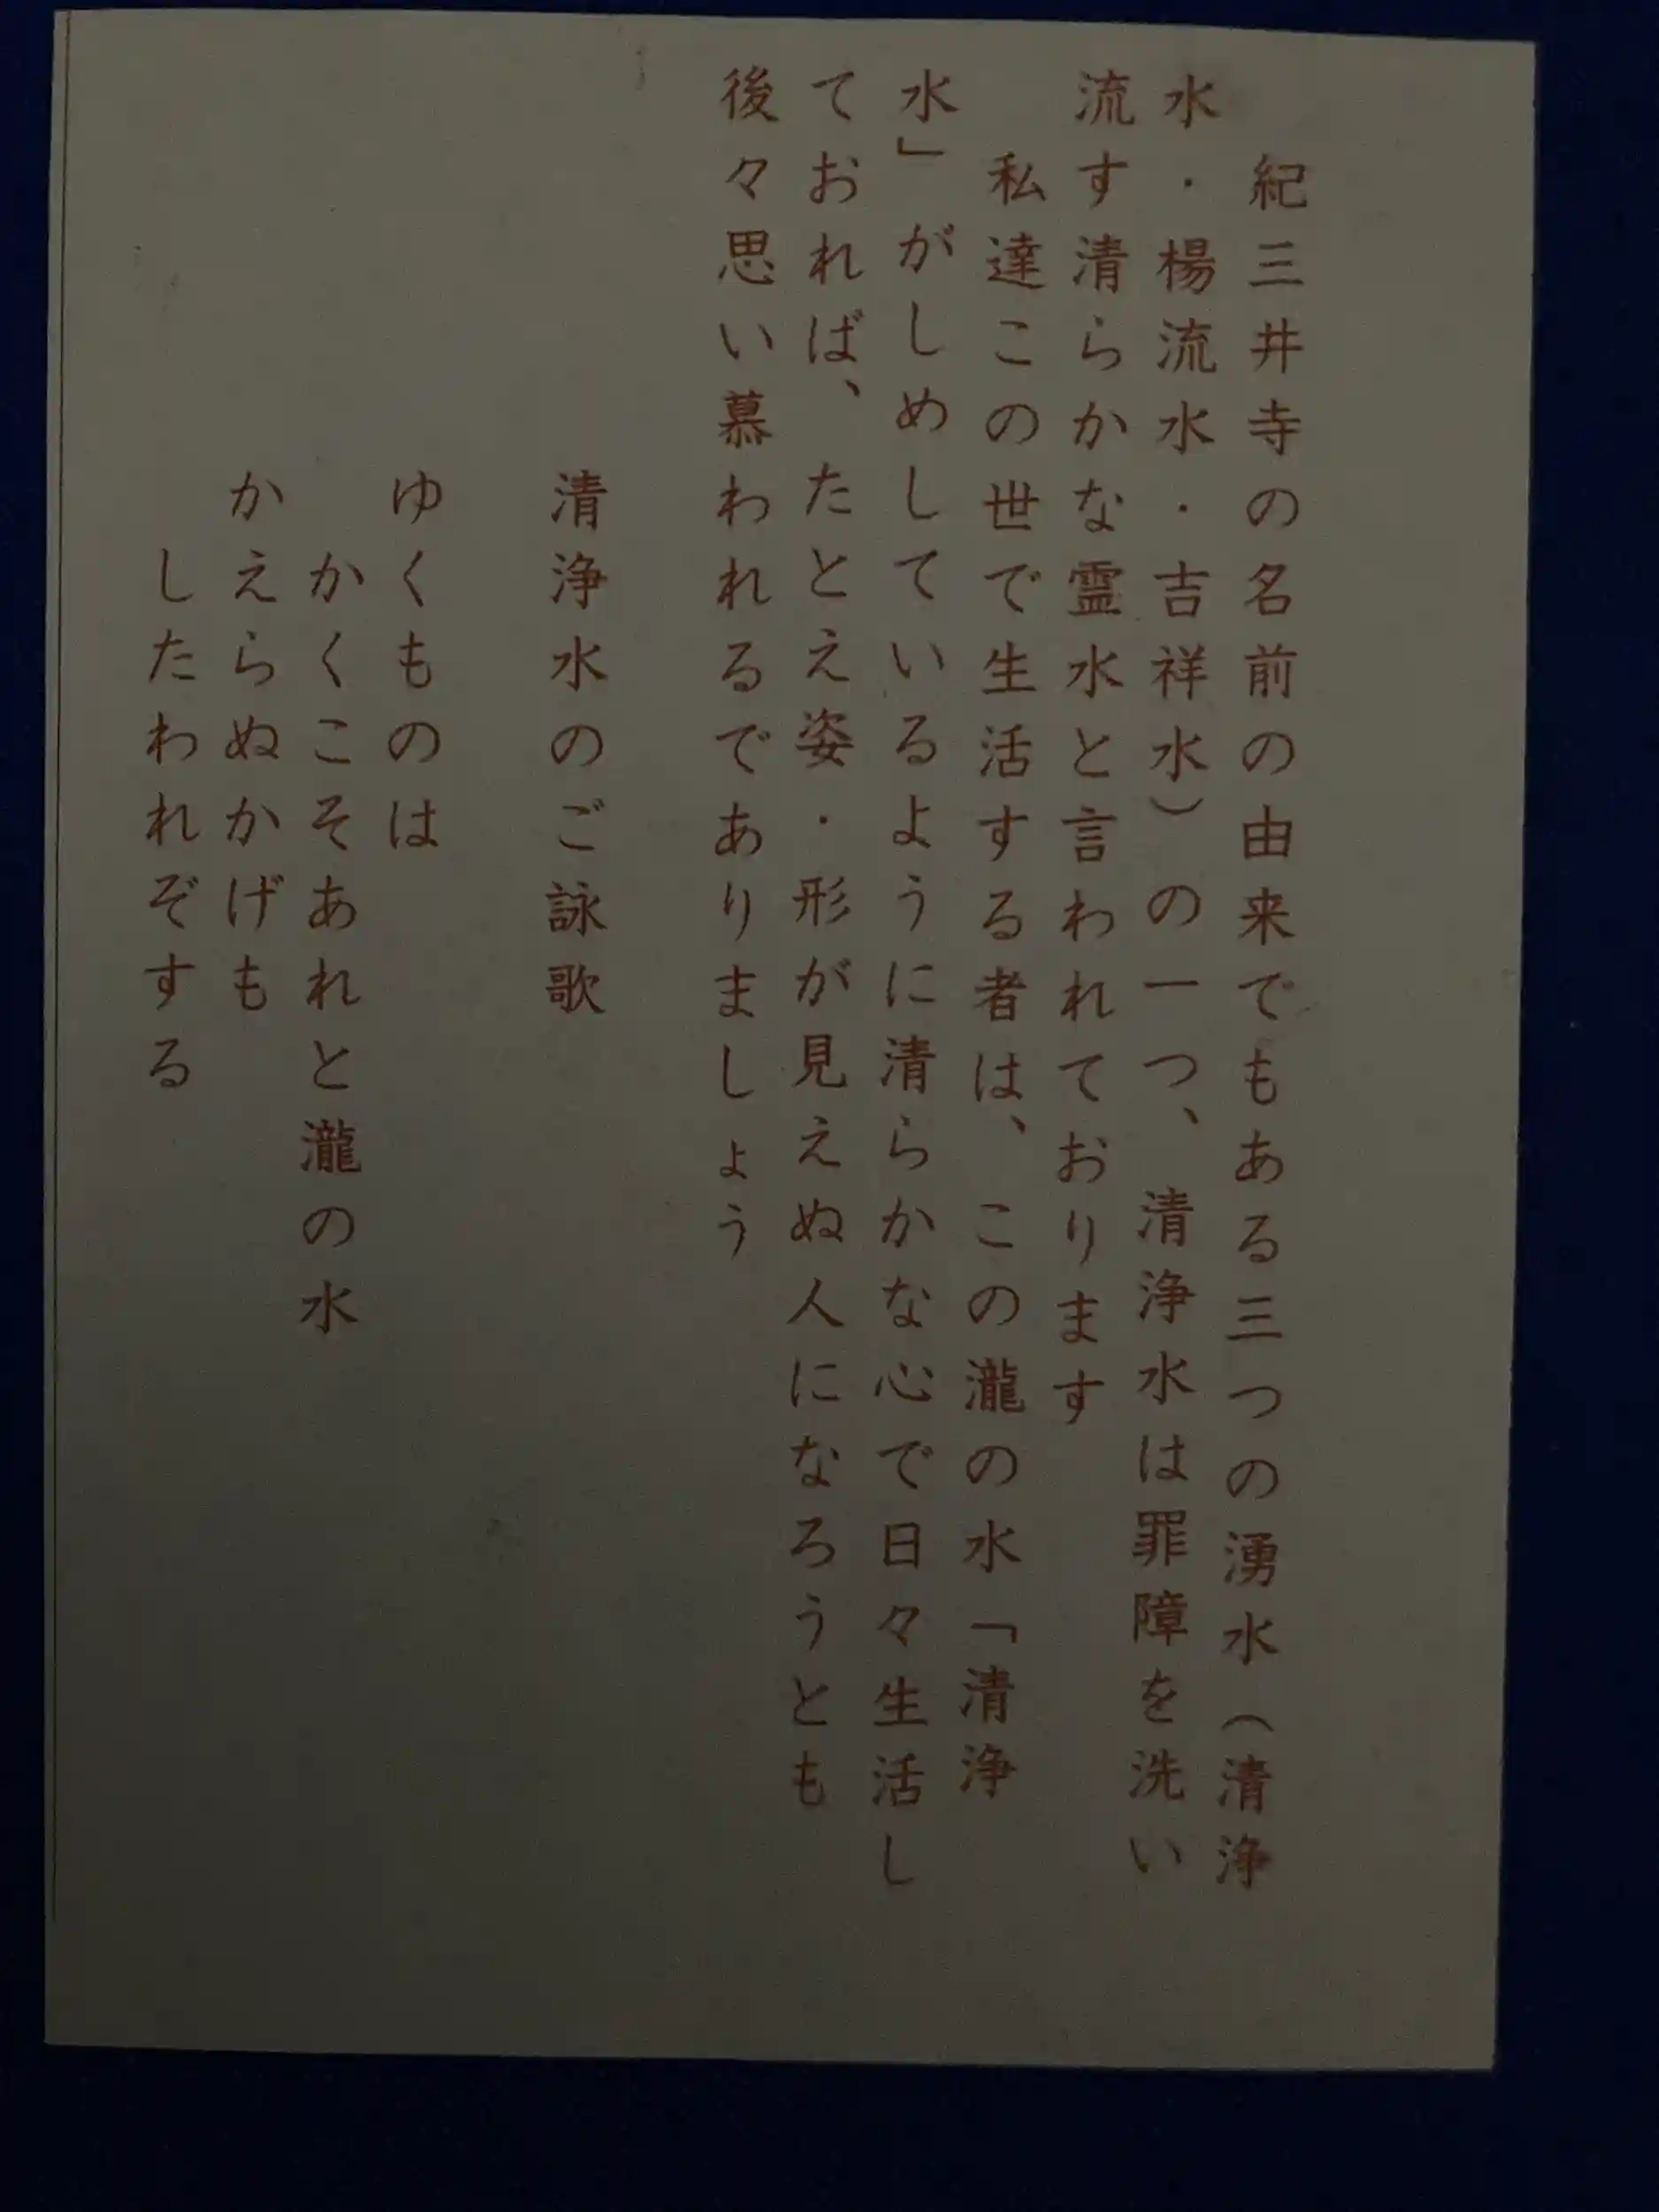 紀三井寺の名前の由来でもある三つの湧水（清浄
水・楊流水・吉祥水）の一つ、清浄水は罪障を洗い
流す清らかな霊水と言われております
私達この世で生活する者は、この瀧の水「清浄
水」がしめしているように清らかな心で日々生活し
ておれば、たとえ姿・形が見えぬ人になろうとも
後々思い慕われるでありましょう
清浄水のご詠歌
ゆくものは
かくこそあれと瀧の水
かえらぬかげも
したわれぞする